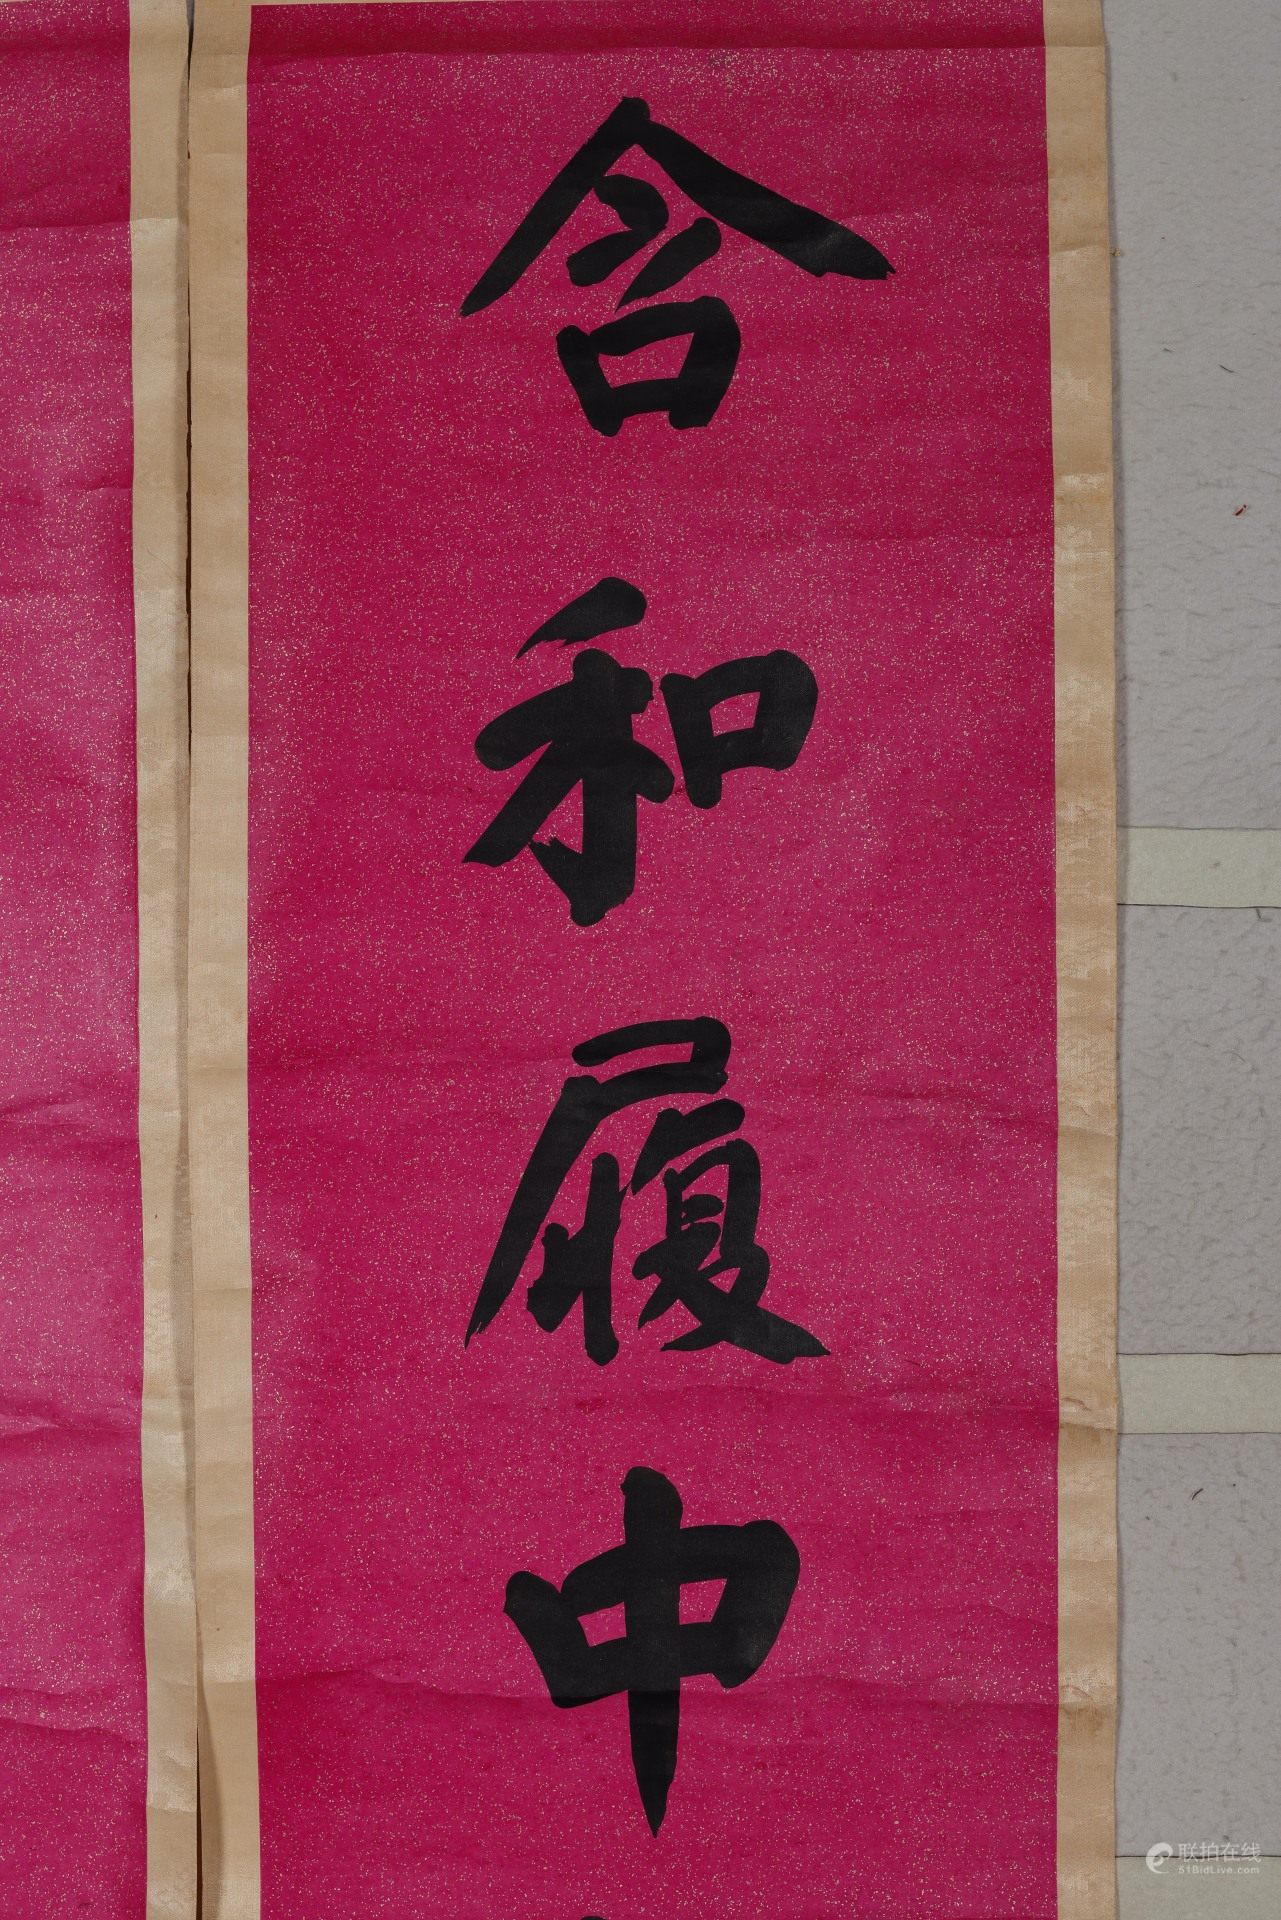 含和履中
联拍在线
51BidLive.com